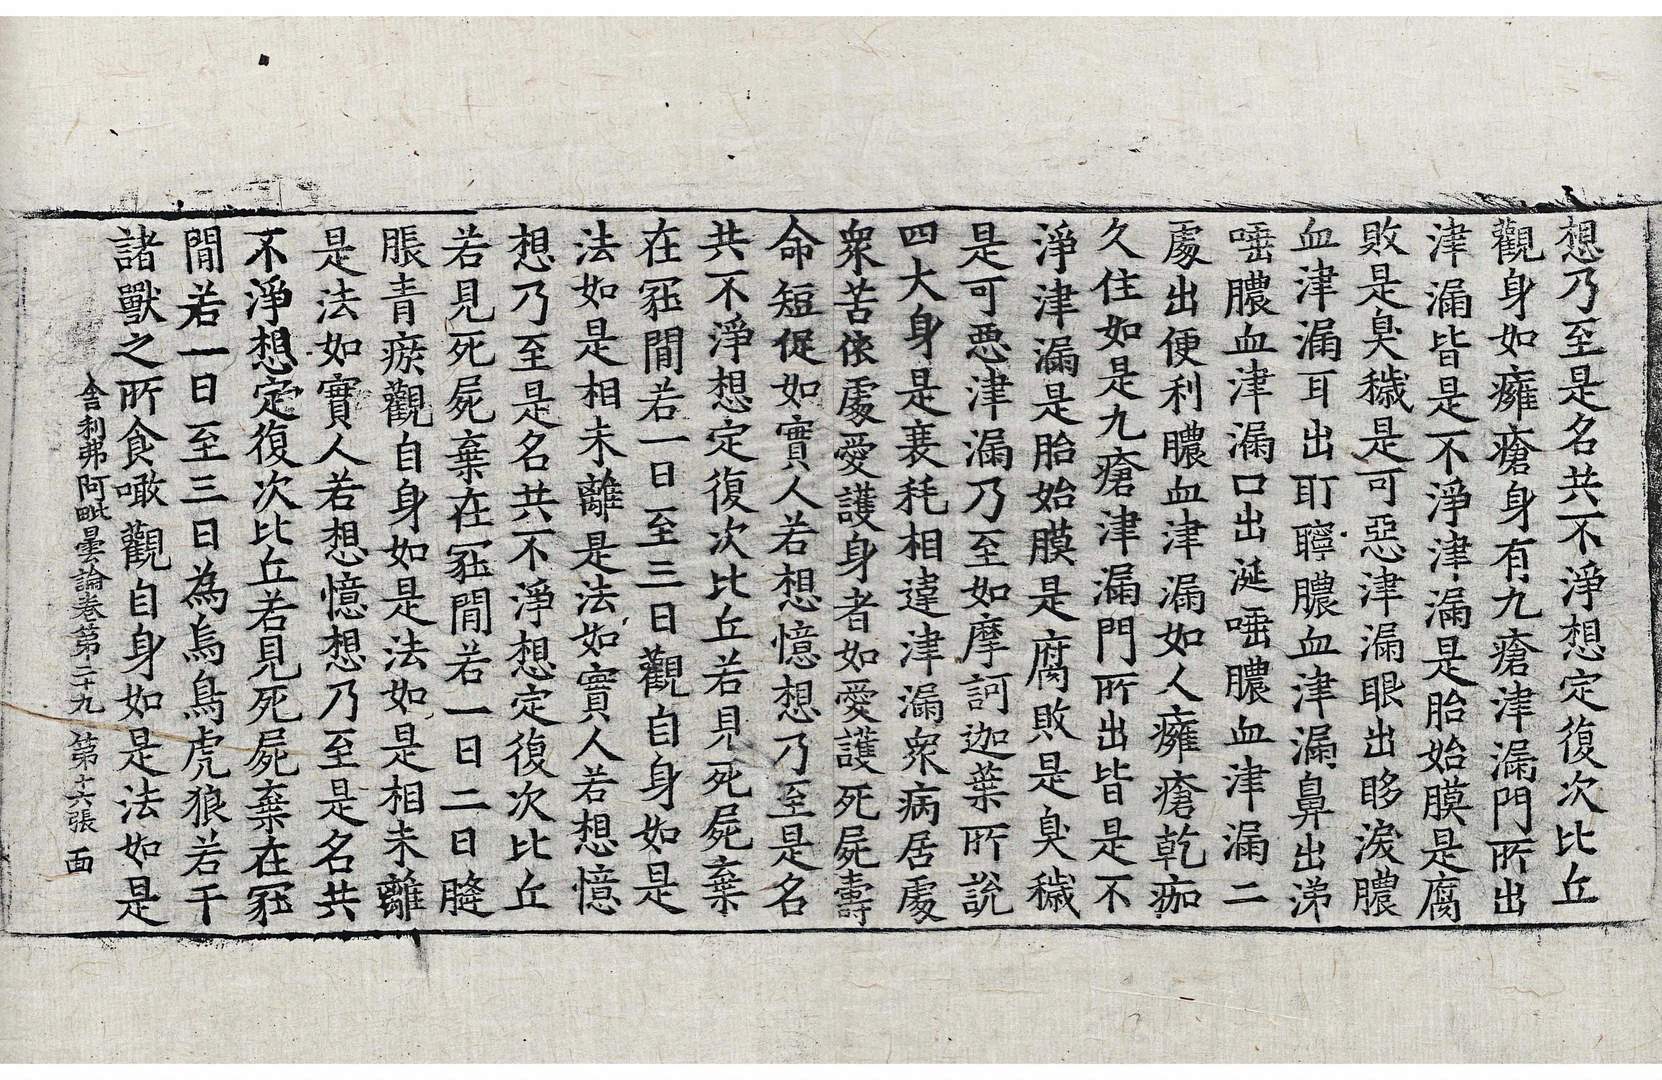 想乃至是名共不淨想定復次比丘
觀身如癰瘡身有九瘡津漏門所出
津漏皆是不淨津漏是胎始膜是腐
敗是臭穢是可惡津漏眼出眵淚膿
血津漏耳出耵聹膿血津漏鼻出涕
唾膿血津漏口出涎唾膿血津漏二
處出便利膿血津漏如人癰瘡乾痂
久住如是九瘡津漏門所出皆是不
淨津漏是胎始膜是腐敗是臭穢
是可惡津漏乃至如摩訶迦葉所說
四大身是衰耗相違津漏衆病居處
衆苦依處愛護身者如愛護死屍壽
命短促如實人若想憶想乃至是名
共不淨想定復次比丘若見死屍棄
在冢間若一日至三日觀自身如是
法如是相未離是法如實人若想憶
想乃至是名共不淨想定復次比丘
若見死屍棄在冢間若一日二日膖
脹青瘀觀自身如是法如是相未離
是法如實人若想憶想乃至是名共
不淨想定復次比丘若見死屍棄在冢
間若一日至三日為烏鳥虎狼若干
諸獸之所食噉觀自身如是法如是
舍利弗阿毗曇論卷第二十九 第十六張 面